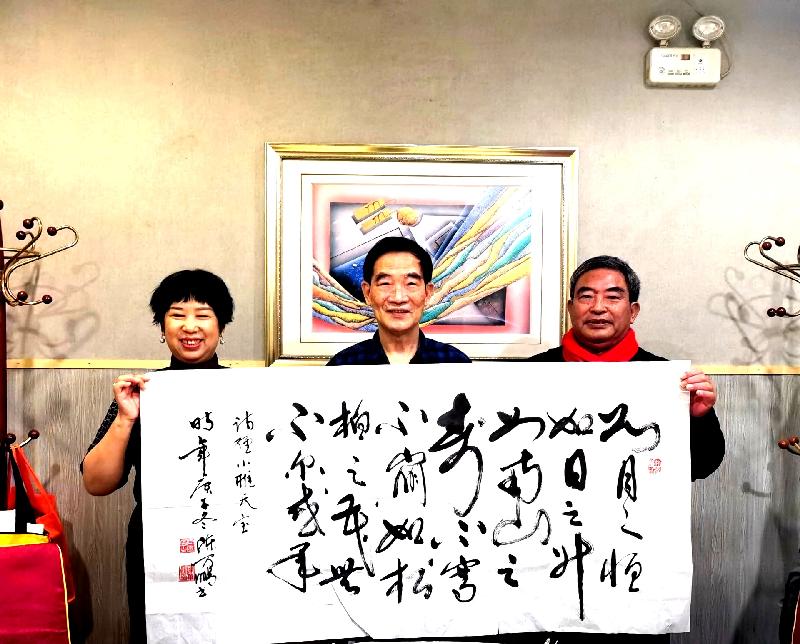 如月之恒
如日之升
如南山之
寿不骞
不崩如松
柏之茂無
不尔或承
诗经小雅天宝
时年庚子冬